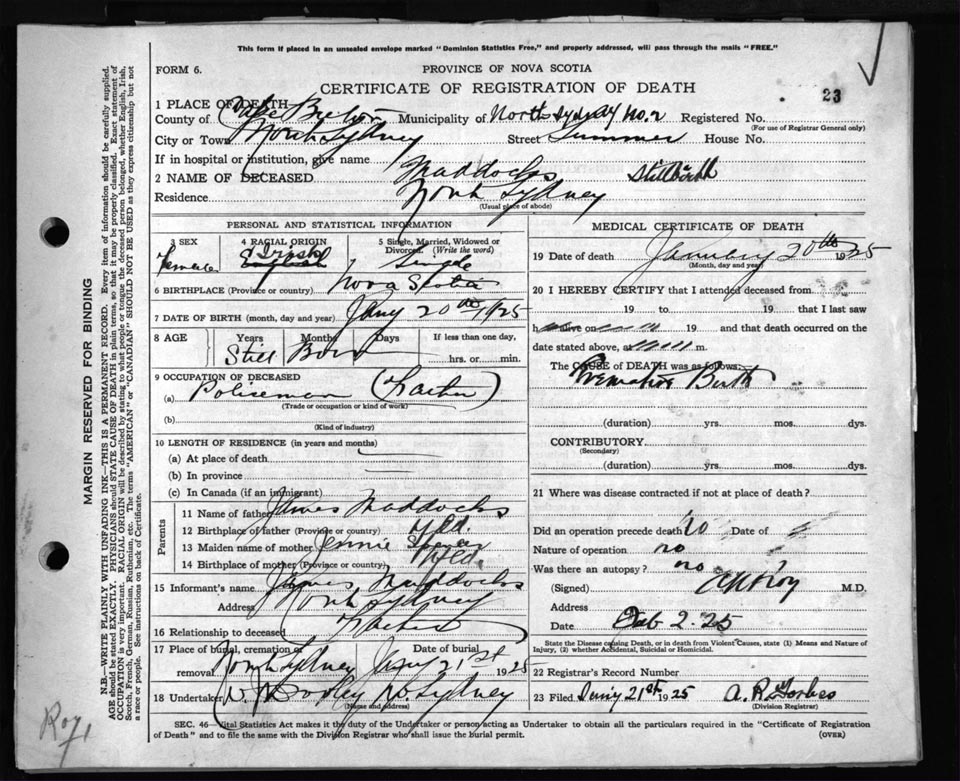 This form if placed in an unsealed envelope marked "Dominion Statistics Free," and properly addressed, will pass through the mails "FREE."
FORM 6.
PROVINCE OF NOVA SCOTIA
CERTIFICATE OF REGISTRATION OF DEATH
23
1 PLACE OF DEATH
County of Cape Breton Municipality of North Sydney No. 2 Registered No.
(For use of Registrar General only)
City or Town North Sydney Street Summer House No.
If in hospital or institution, give name
2 NAME OF DECEASED Maddocks Stillbirth
Residence North Sydney
(Usual place of abode)
PERSONAL AND STATISTICAL INFORMATION
3 SEX 4 RACIAL ORIGIN 5 Single, Married, Widowed or Divorced. (Write the word)
Female Irish English Single
6 BIRTHPLACE (Province or country) Nova Scotia
7 DATE OF BIRTH (month, day and year) Jany 20th 1925
8 AGE Years Months Days If less than one day,
Still Born hrs. or min.
9 OCCUPATION OF DECEASED
(a) Policeman (Father)
(Trade or occupation or kind of work)
(b)
(Kind of industry)
10 LENGTH OF RESIDENCE (in years and months)
(a) At place of death
(b) In province
(c) In Canada (if an immigrant)
Parents
11 Name of father James Maddocks
12 Birthplace of father (Province or country) Nfld.
13 Maiden name of mother Jennie
14 Birthplace of mother (Province or country) Nfld.
15 Informant's name James Maddocks
Address North Sydney
16 Relationship to deceased Father
17 Place of burial, cremation or removal Date of burial
North Sydney Jany 21st 1925
18 Undertaker N. Sydney
(Name and address)
MEDICAL CERTIFICATE OF DEATH
19 Date of death January 20th 1925
(Month, day and year)
20 I HEREBY CERTIFY that I attended deceased from
19 to 19 that I last saw
h alive on 19 and that death occurred on the
date stated above, at m.
The CAUSE of DEATH was as follows:
Premature Birth
(duration) yrs. mos. dys.
CONTRIBUTORY
(Secondary)
(duration) yrs. mos. dys.
21 Where was disease contracted if not at place of death?
Did an operation precede death No Date of
Nature of operation no
Was there an autopsy? no
(Signed) M.D.
Address
Date Feb 2. 25
State the Disease causing Death, or in death from Violent Causes, state (1) Means and Nature of
Injury, (2) whether Accidental, Suicidal or Homicidal.
22 Registrar's Record Number
23 Filed Jany 21st 1925 A. R. Forbes
(Division Registrar)
SEC. 46—Vital Statistics Act makes it the duty of the Undertaker or person acting as Undertaker to obtain all the particulars required in the "Certificate of Registration
of Death" and to file the same with the Division Registrar who shall issue the burial permit. (OVER)
MARGIN RESERVED FOR BINDING
N.B.—WRITE PLAINLY WITH UNFADING INK—THIS IS A PERMANENT RECORD. Every item of information should be carefully supplied.
AGE should be stated EXACTLY. PHYSICIANS should STATE CAUSE OF DEATH in plain terms, so that it may be properly classified. Exact statement of
OCCUPATION is very important. RACIAL ORIGIN will be described by stating to what people or tongue the deceased person belonged, whether English, Irish,
Scotch, French, German, Russian, Ruthenian, etc. The terms "AMERICAN" or "CANADIAN" SHOULD NOT BE USED as they express citizenship but not
a race or people. See instructions on back of Certificate.
Roy,